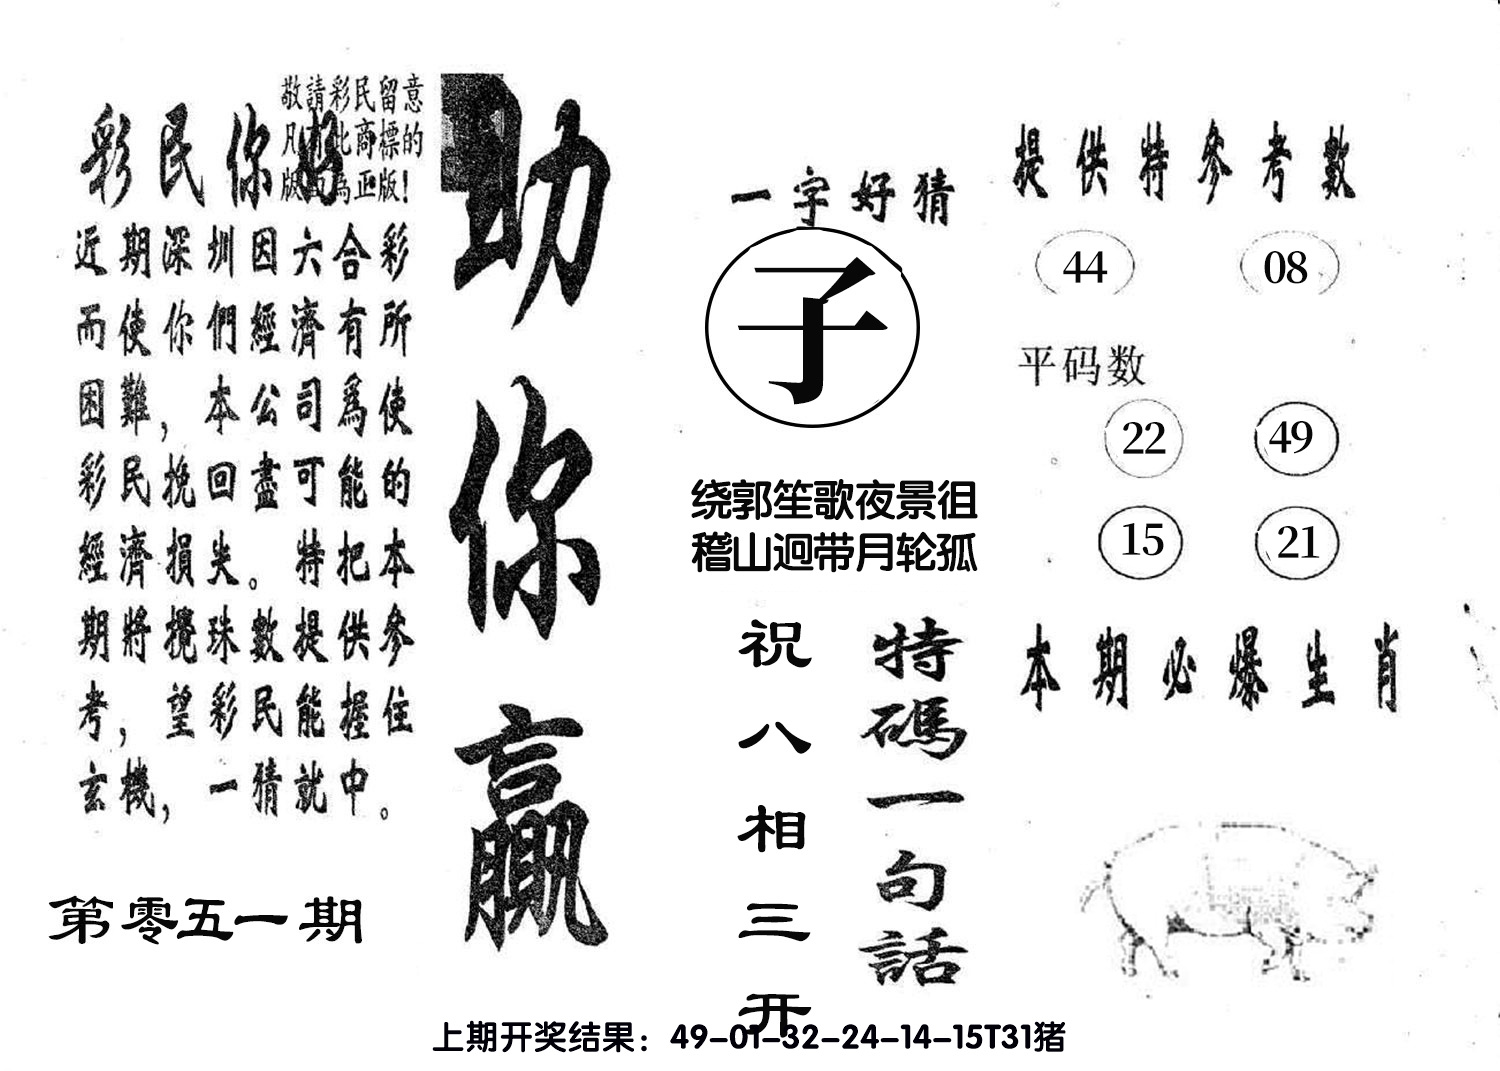 敬請彩民留意
凡有此商標的
版面為正版!
彩民你好
近期深圳因六合彩
而使你們經濟有所
困難，本公司爲使
彩民挽回盡可能的
經濟損失。特把本
期將攪珠數提供參
考，望彩民能握住
玄機，一猜就中。
第零五一期
助你贏
一字好猜
子
绕郭笙歌夜景徂
稽山迥带月轮孤
特碼一句話
祝八相三开
提供特參考數
44 08
平码数
22 49
15 21
本期必爆生肖
上期开奖结果：49-01-32-24-14-15T31猪